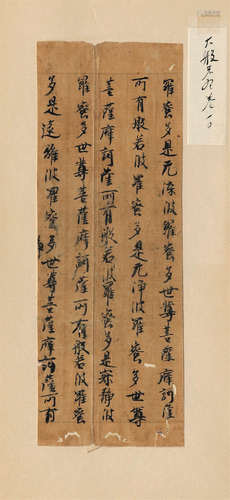 大般
羅蜜多是无染波羅蜜多世尊菩薩摩訶薩
所有般若波羅蜜多是无淨波羅蜜多世尊
菩薩摩訶薩所有般若波羅蜜多是寂靜波
羅蜜多世尊菩薩摩訶薩所有般若波羅蜜
多是遠離波羅蜜多世尊菩薩摩訶薩所有